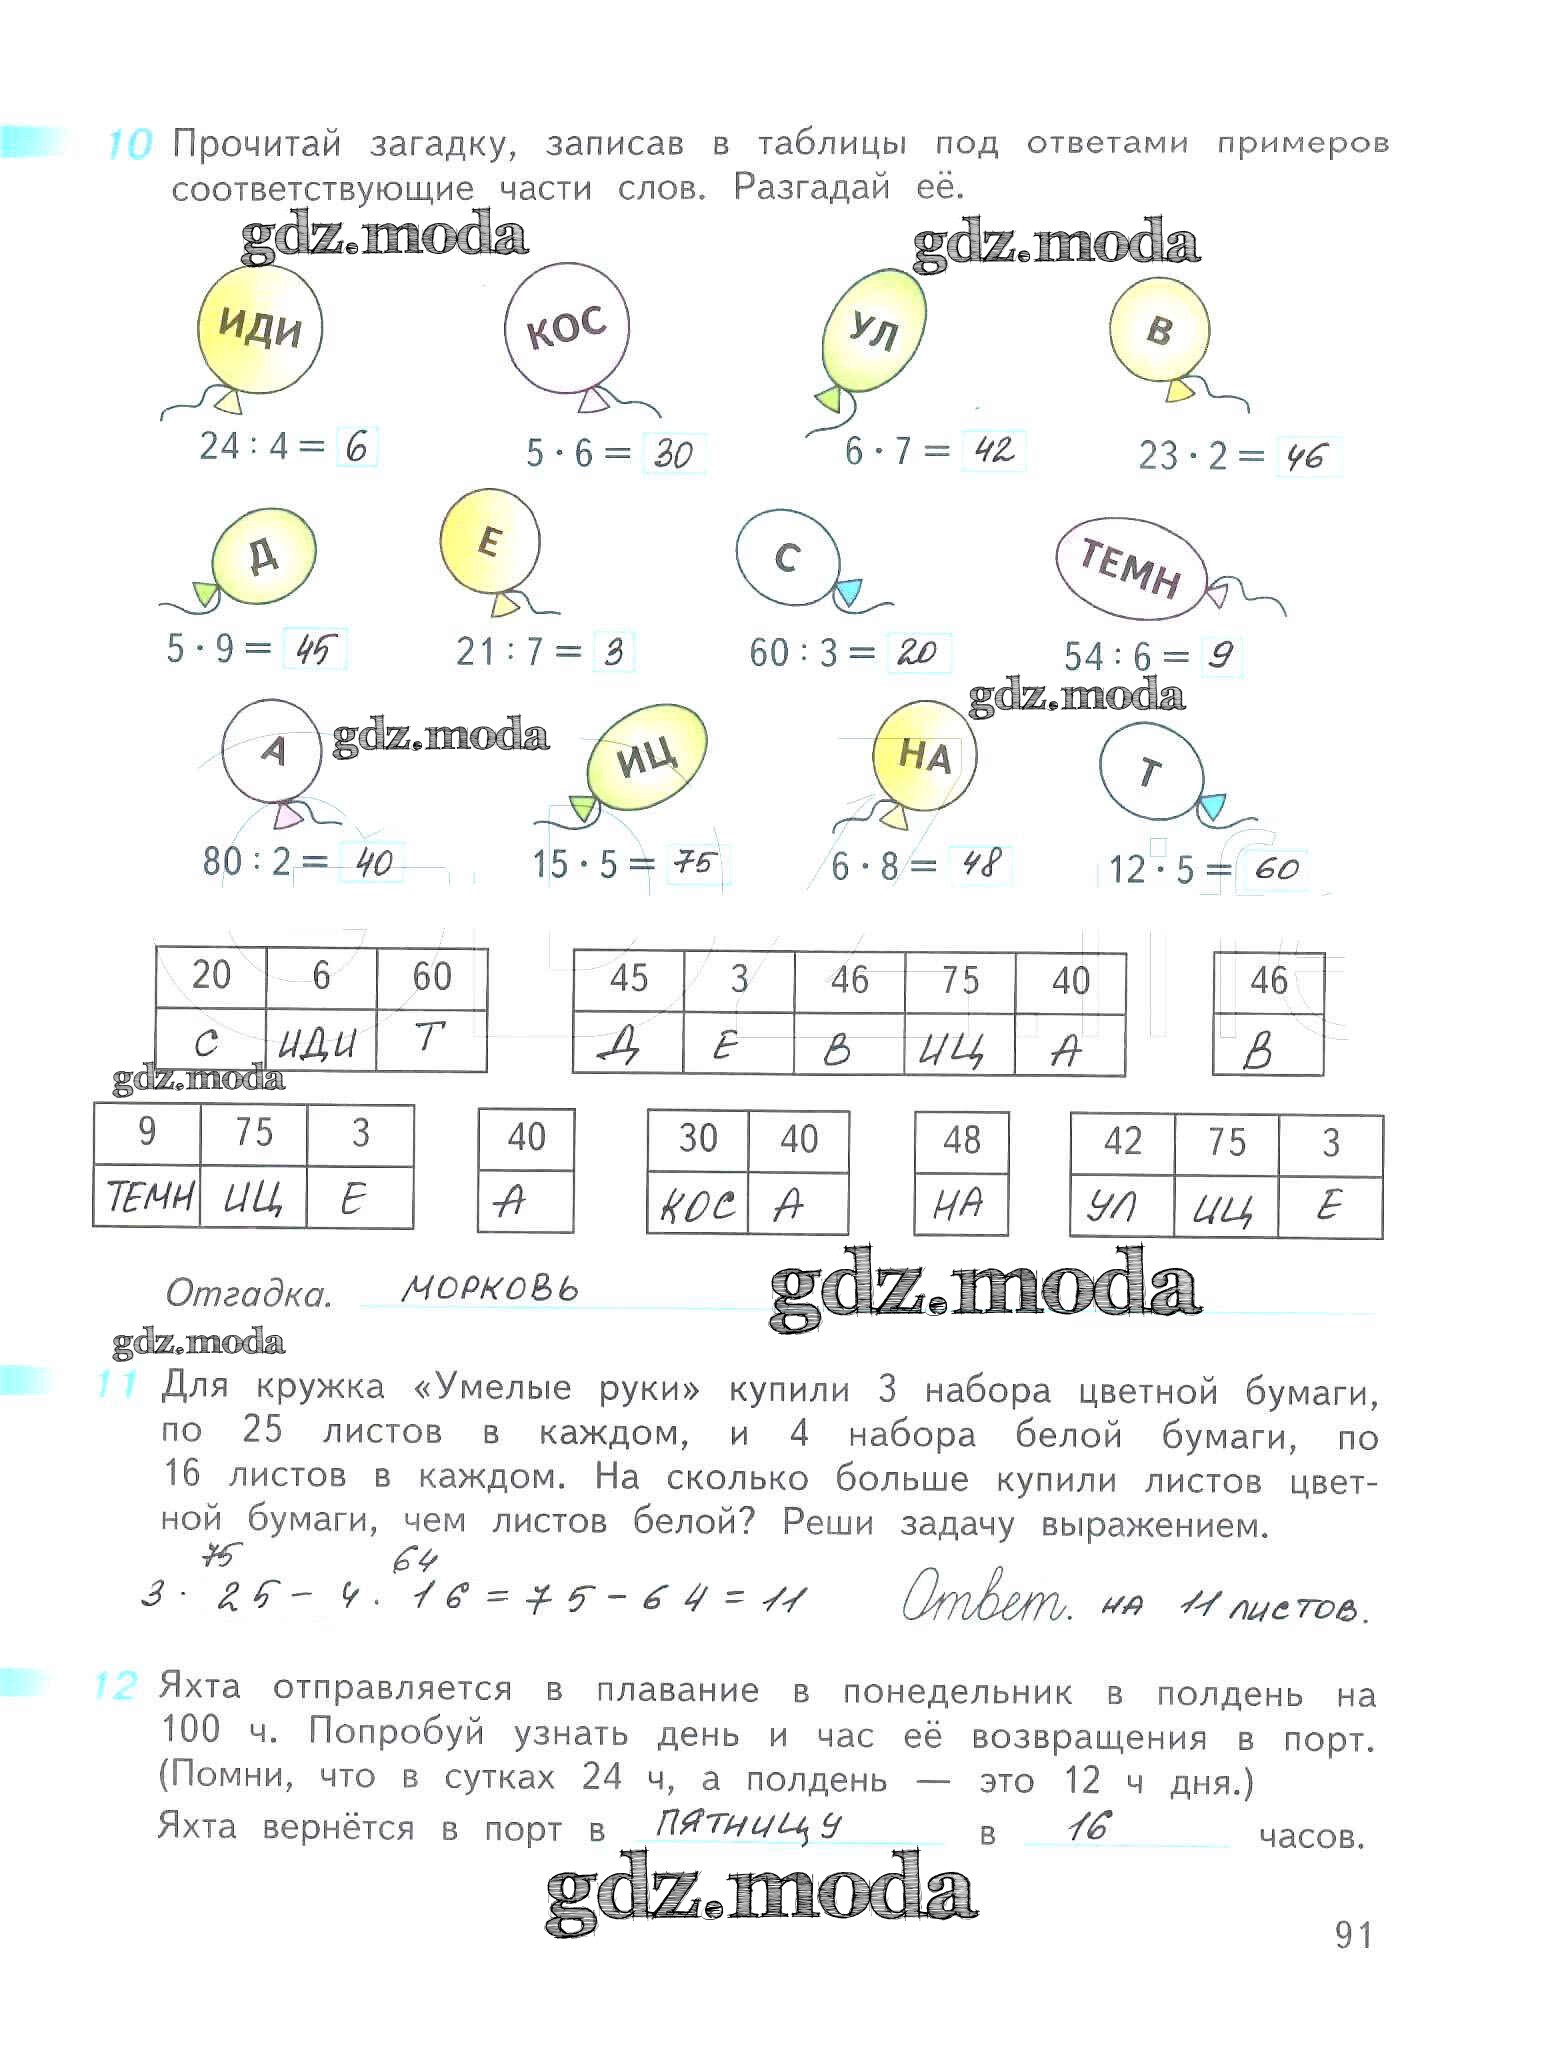 10 Прочитай загадку, записав в таблицы под ответами примеров
соответствующие части слов. Разгадай её.
gdz.moda gdz.moda
ИДИ КОС УЛ В
24 : 4 = 6 5 · 6 = 30 6 · 7 = 42 23 · 2 = 46
Д Е С ТЕМН
5 · 9 = 45 21 : 7 = 3 60 : 3 = 20 54 : 6 = 9
gdz.moda gdz.moda
А ИЦ НА Т
80 : 2 = 40 15 · 5 = 75 6 · 8 = 48 12 · 5 = 60
20 6 60 45 3 46 75 40 46
С ИДИ Т Д Е В ИЦ А В
gdz.moda
9 75 3 40 30 40 48 42 75 3
ТЕМН ИЦ Е А КОС А НА УЛ ИЦ Е
Отгадка. МОРКОВЬ
gdz.moda
gdz.moda
11 Для кружка «Умелые руки» купили 3 набора цветной бумаги,
по 25 листов в каждом, и 4 набора белой бумаги, по
16 листов в каждом. На сколько больше купили листов цвет-
ной бумаги, чем листов белой? Реши задачу выражением.
75 64
3 · 25 − 4 · 16 = 75 − 64 = 11 Ответ. НА 11 ЛИСТОВ.
12 Яхта отправляется в плавание в понедельник в полдень на
100 ч. Попробуй узнать день и час её возвращения в порт.
(Помни, что в сутках 24 ч, а полдень — это 12 ч дня.)
Яхта вернётся в порт в ПЯТНИЦУ в 16 часов.
gdz.moda
91